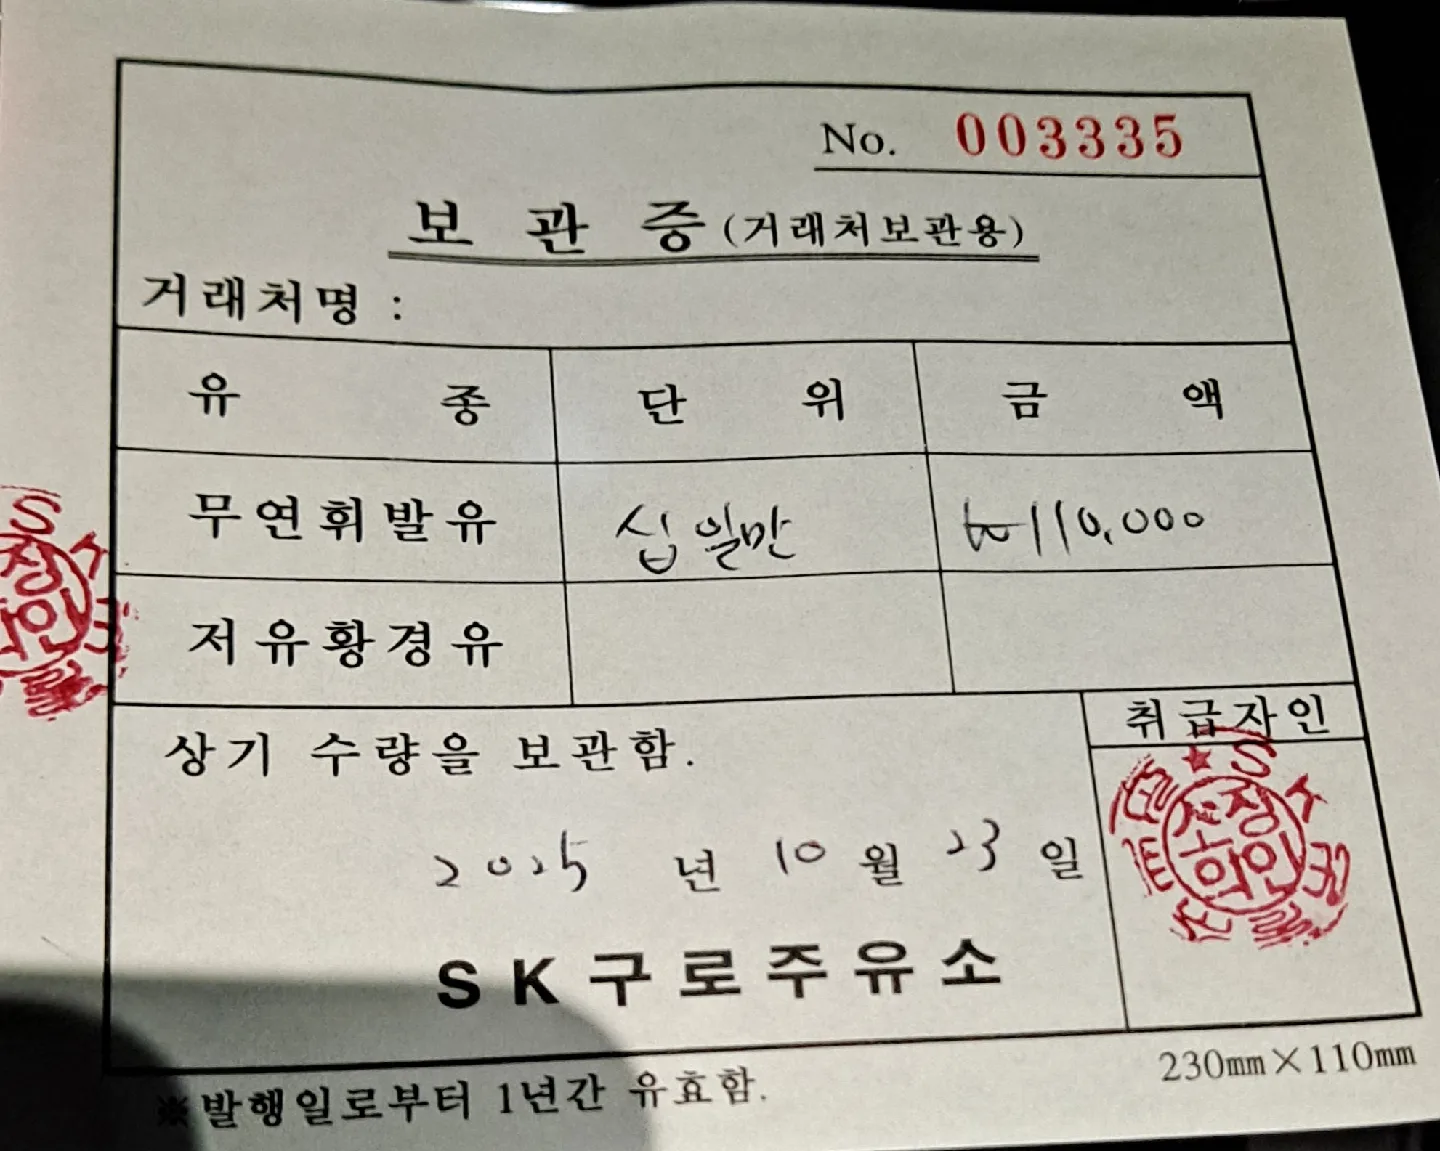 No. 003335
보관증(거래처보관용)
거래처명 :
유종 단위 금액
무연휘발유 십일만 ₩110,000
저유황경유
상기 수량을 보관함.
취급자인
2025 년 10 월 23 일
SK구로주유소
230mm×110mm
※발행일로부터 1년간 유효함.